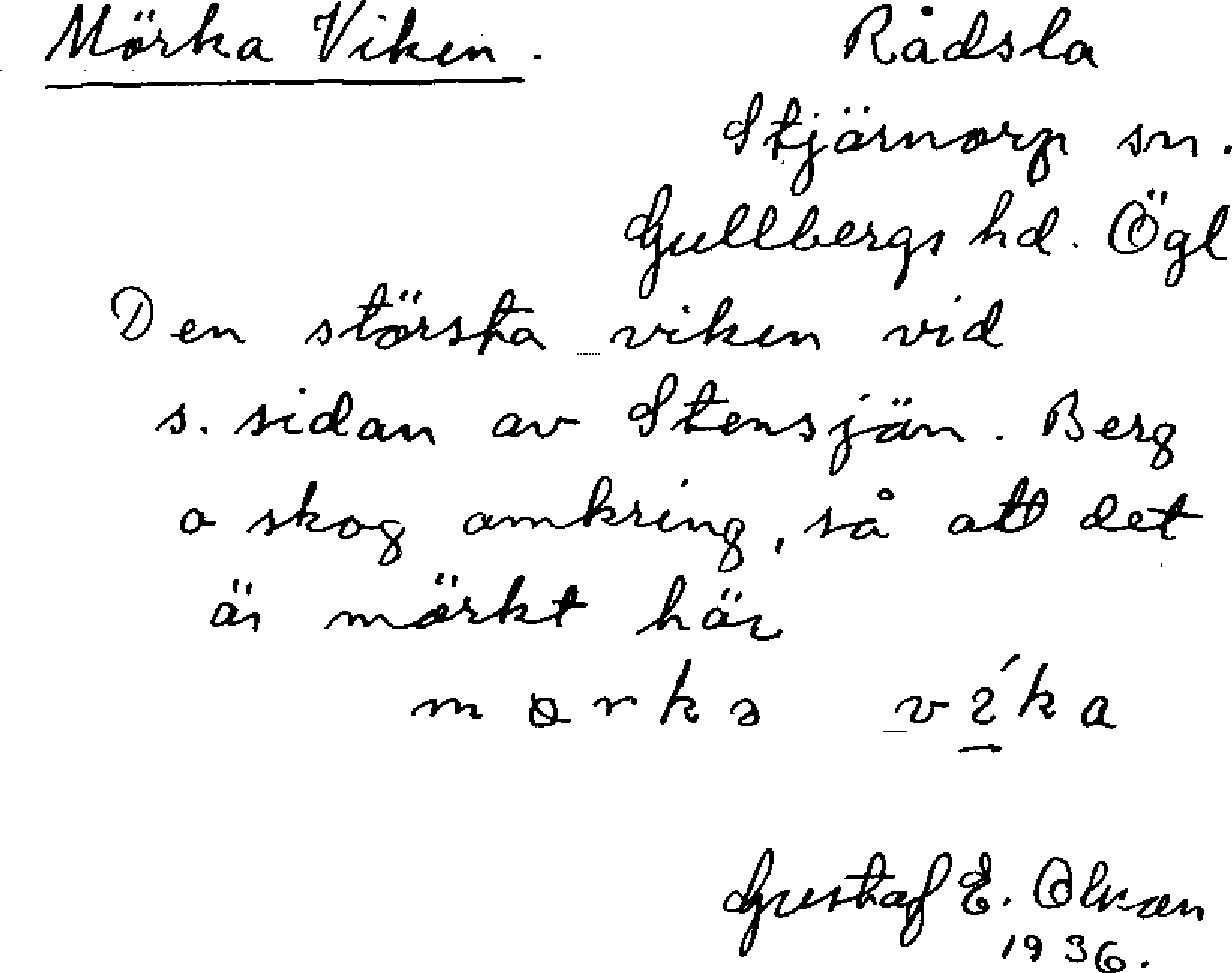 Mörka Viken. Rådsla
Stjärnorp sn.
Gullbergs hd. Ögl
Den största viken vid
s. sidan av Stensjön. Berg
o skog omkring, så att det
är mörkt här
Gustaf E. Olson
1936.